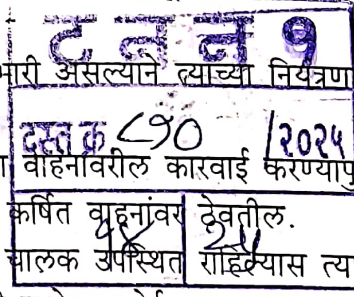 ट न न १
मारी असल्याने त्याच्या नियंत्रण
दस्त क्र ८१० / २०२५
वाहनांवरील कारवाई करण्यापु
कर्षित वाहनांवर ठेवतील.
चालक उपस्थित राहिल्यास त्य